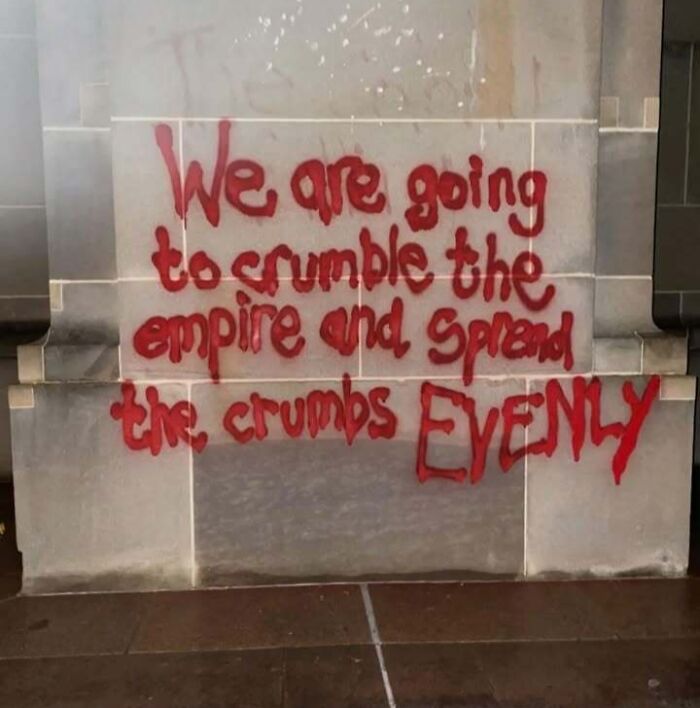 We are going
to crumble the
empire and spread
the crumbs EVENLY